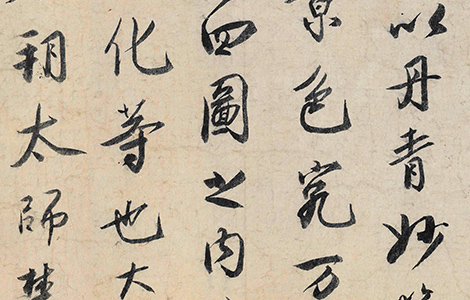 以丹青妙
景色万
四圖之内
化等也大
朔太師楚